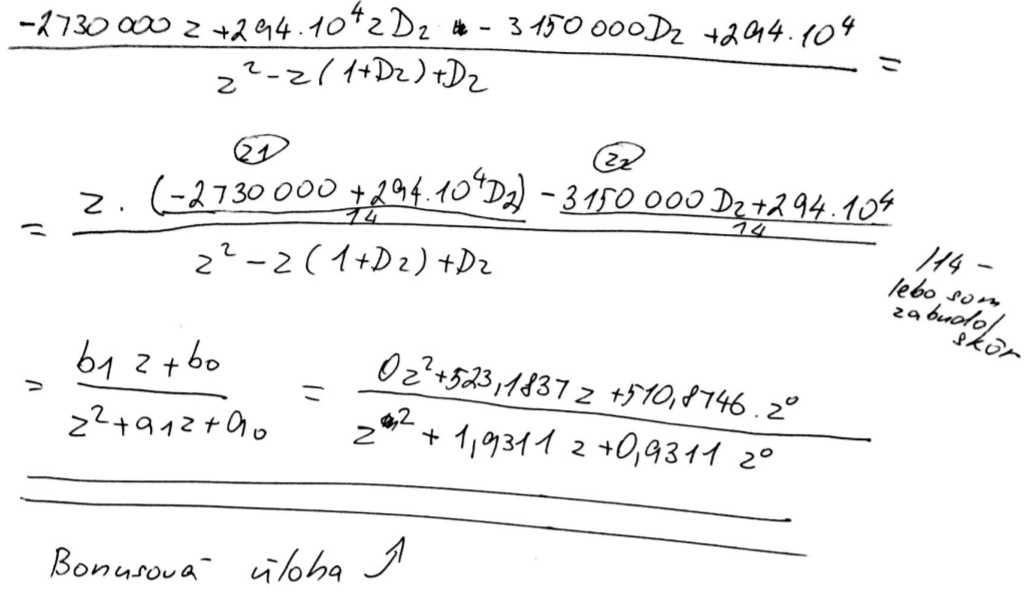 -2730 000 z + 294.10^4 z D2 - 3150 000 D2 + 294.10^4
z^2 - z(1+D2) + D2
=
21 22
= z. (-2730 000 + 294.10^4 D2) - 3150 000 D2 + 294.10^4
14 14
z^2 - z(1+D2) + D2
/14 -
lebo som
zabudol
skôr
= b1 z + b0 = 0z^2 + 523,1837 z + 510,8746 . z^0
z^2 + a1 z + a0 z^2 + 1,9311 z + 0,9311 z^0
Bonusová úloha ↑